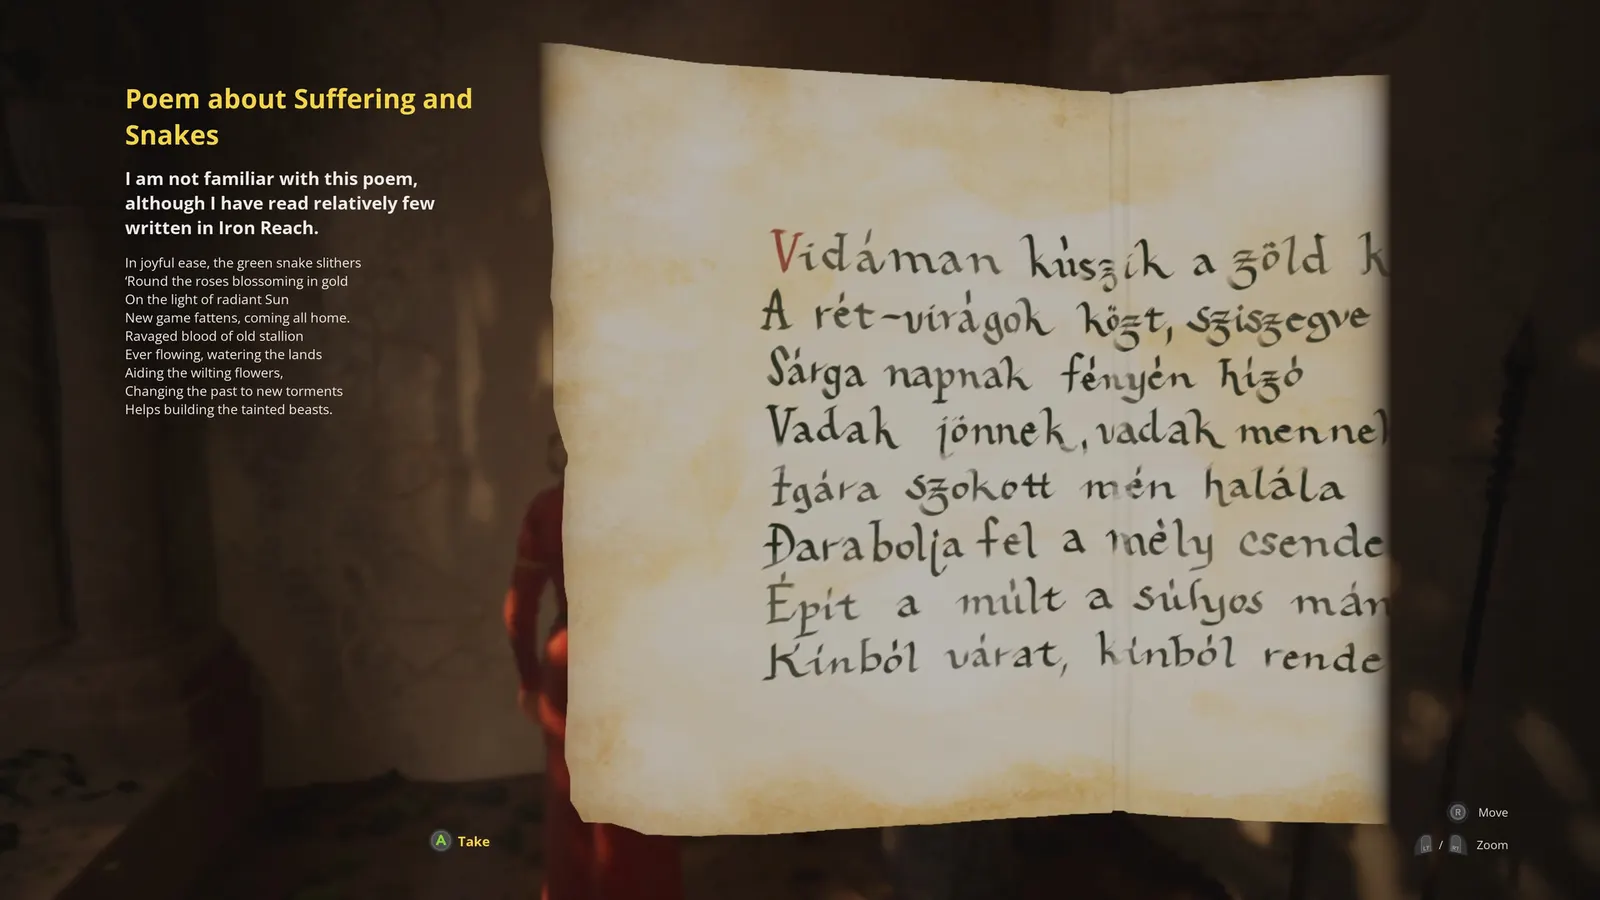 Poem about Suffering and
Snakes
I am not familiar with this poem,
although I have read relatively few
written in Iron Reach.
In joyful ease, the green snake slithers
‘Round the roses blossoming in gold
On the light of radiant Sun
New game fattens, coming all home.
Ravaged blood of old stallion
Ever flowing, watering the lands
Aiding the wilting flowers,
Changing the past to new torments
Helps building the tainted beasts.
Vidáman kúszik a zöld k
A rét-virágok közt, sziszegve
Sárga napnak fényén hízó
Vadak jönnek, vadak mennek
Igára szokott mén halála
Darabolja fel a mély csende
Épít a múlt a súlyos mán
Kínból várat, kínból rende
A Take
R Move
LT / RT Zoom